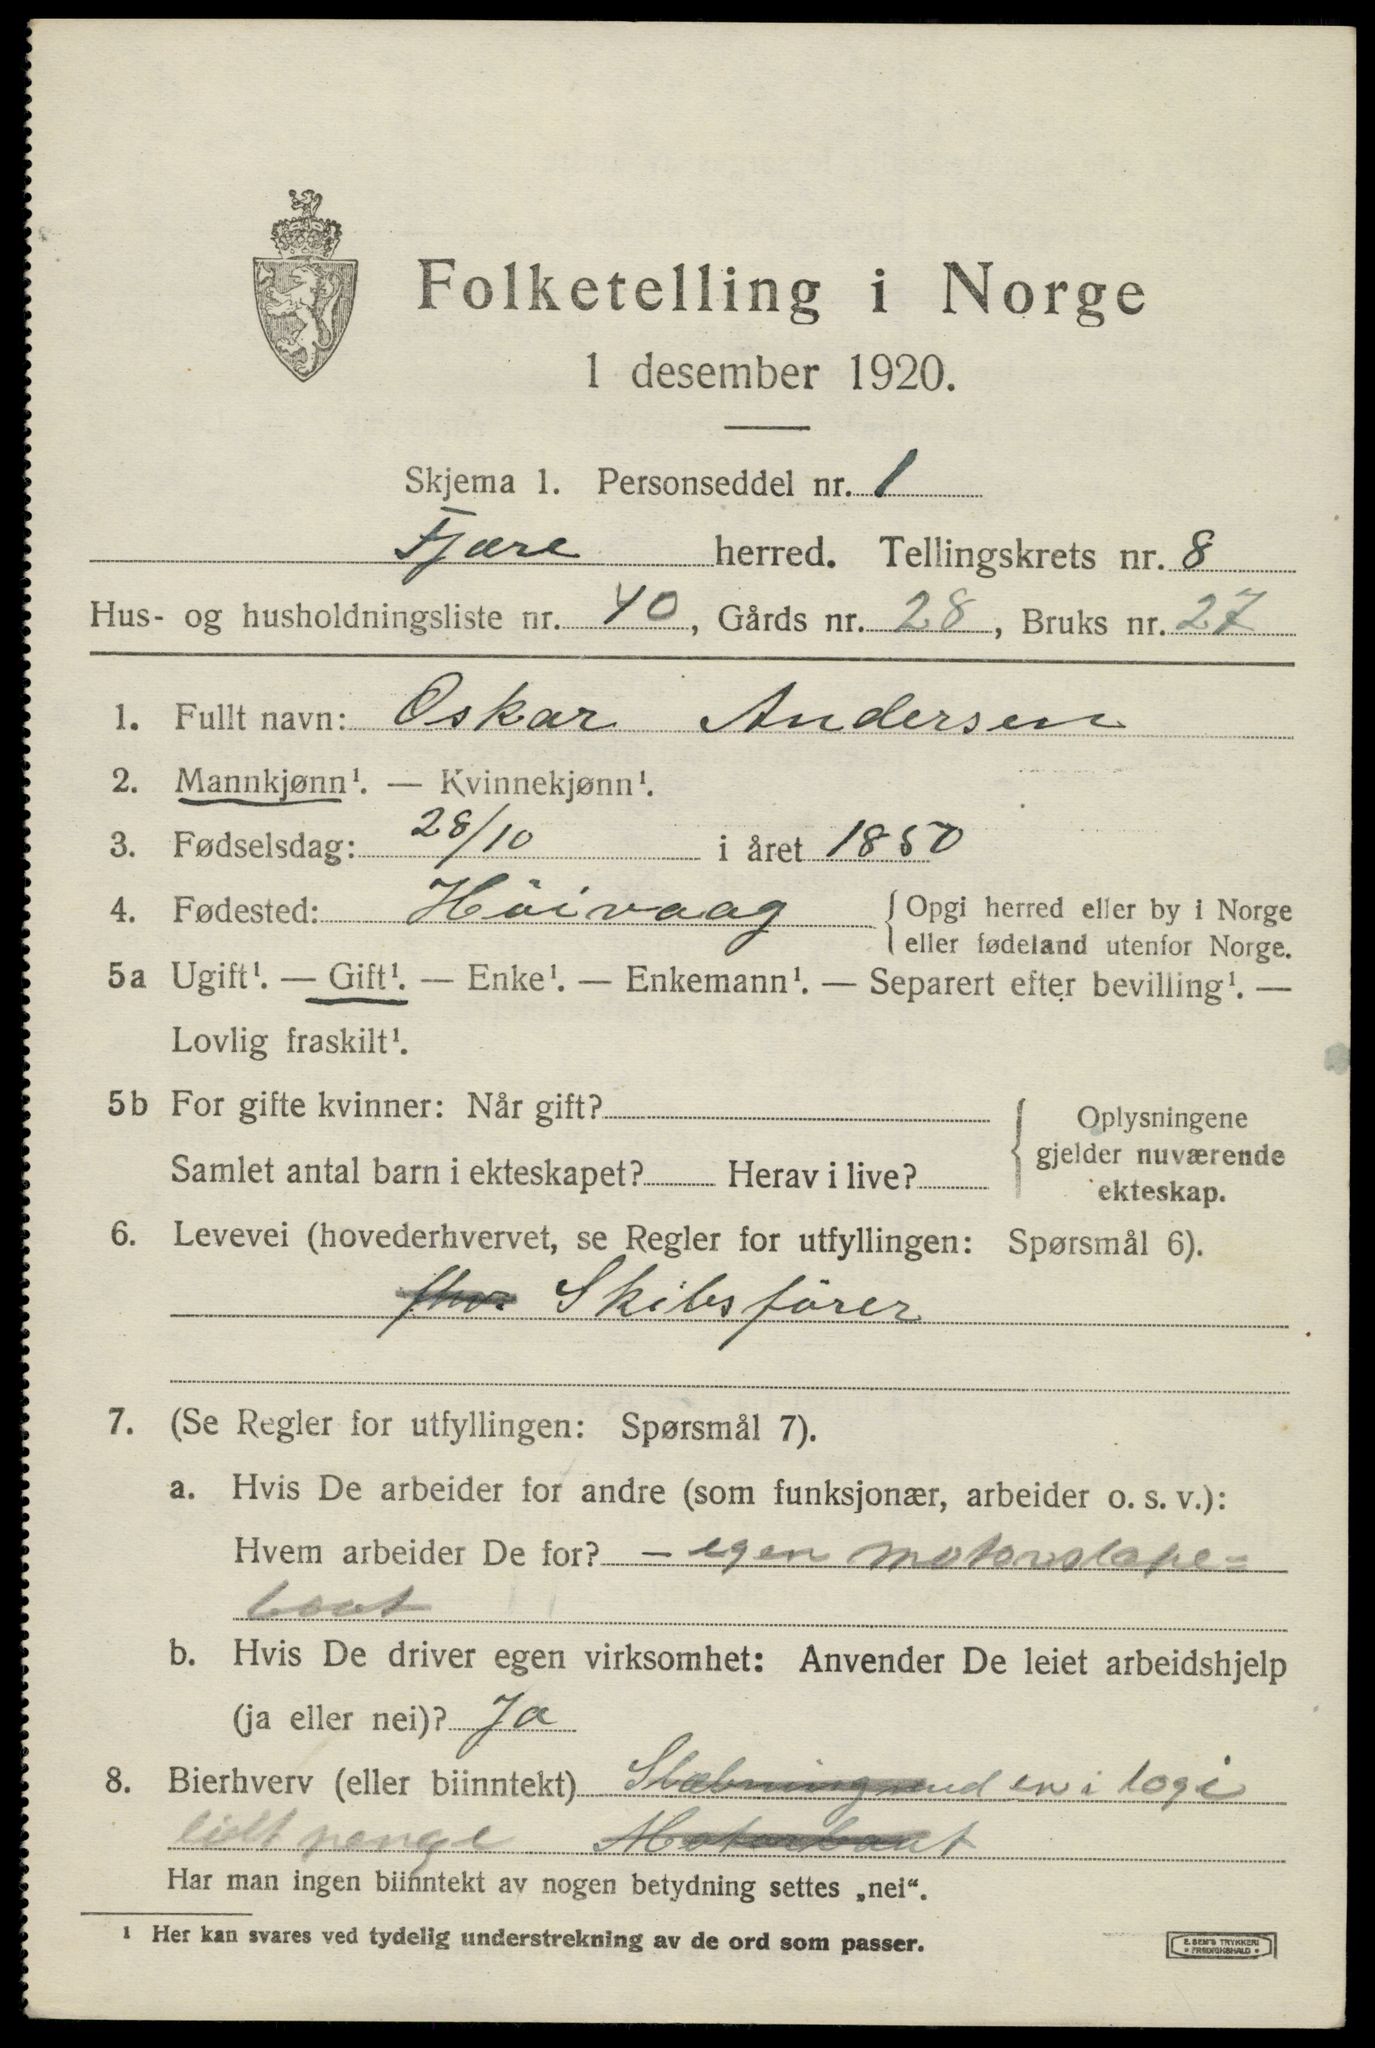 Folketelling i Norge
1 desember 1920.
Skjema 1. Personseddel nr. 1
Fjære herred. Tellingskrets nr. 8
Hus- og husholdningsliste nr. 40, Gårds nr. 28, Bruks nr. 27
1. Fullt navn: Oskar Andersen
2. Mannkjønn¹. — Kvinnekjønn¹.
3. Fødselsdag: 28/10 i året 1850
4. Fødested: Höivaag { Opgi herred eller by i Norge
eller fødeland utenfor Norge.
5a Ugift¹. — Gift¹. — Enke¹. — Enkemann¹. — Separert efter bevilling¹. —
Lovlig fraskilt¹.
5b For gifte kvinner: Når gift?
Samlet antal barn i ekteskapet? Herav i live?
Oplysningene
gjelder nuværende
ekteskap.
6. Levevei (hovederhvervet, se Regler for utfyllingen: Spørsmål 6).
Skibsförer
7. (Se Regler for utfyllingen: Spørsmål 7).
a. Hvis De arbeider for andre (som funksjonær, arbeider o. s. v.):
Hvem arbeider De for? – egen motorslæpe=
baat
b. Hvis De driver egen virksomhet: Anvender De leiet arbeidshjelp
(ja eller nei)? Ja
8. Bierhverv (eller biinntekt) Slæbning med en i logi
lidt penge Motorbaat
Har man ingen biinntekt av nogen betydning settes „nei“.
¹ Her kan svares ved tydelig understrekning av de ord som passer.
E. SEM'S TRYKKERI
• FREDRIKSHALD •